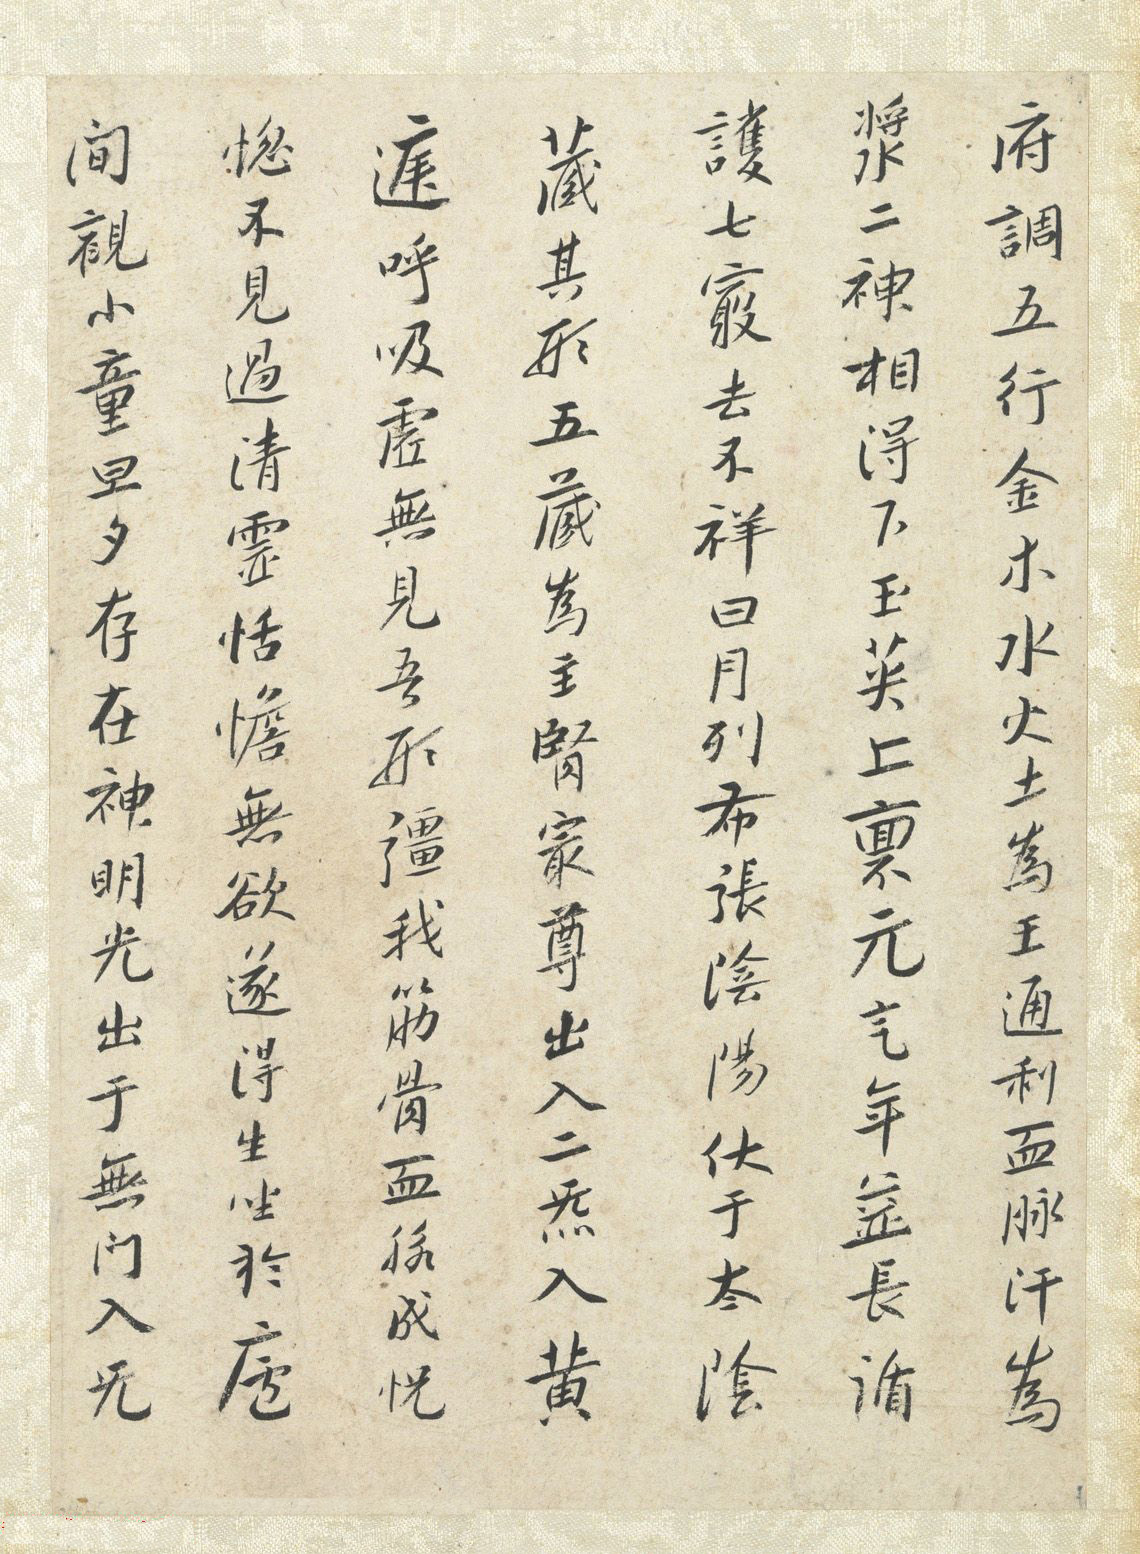 府調五行金木水火土為王通利血脉汗為
漿二神相得下玉英上禀元气年益長循
護七竅去不祥日月列布張陰陽伏于太陰
藏其形五藏為主腎冣尊出入二炁入黄
庭呼吸虚無見吾形彊我筋骨血脉成恍
惚不見過清靈恬憺無欲遂得生坐於廬
間觀小童旦夕存在神明光出于無門入无